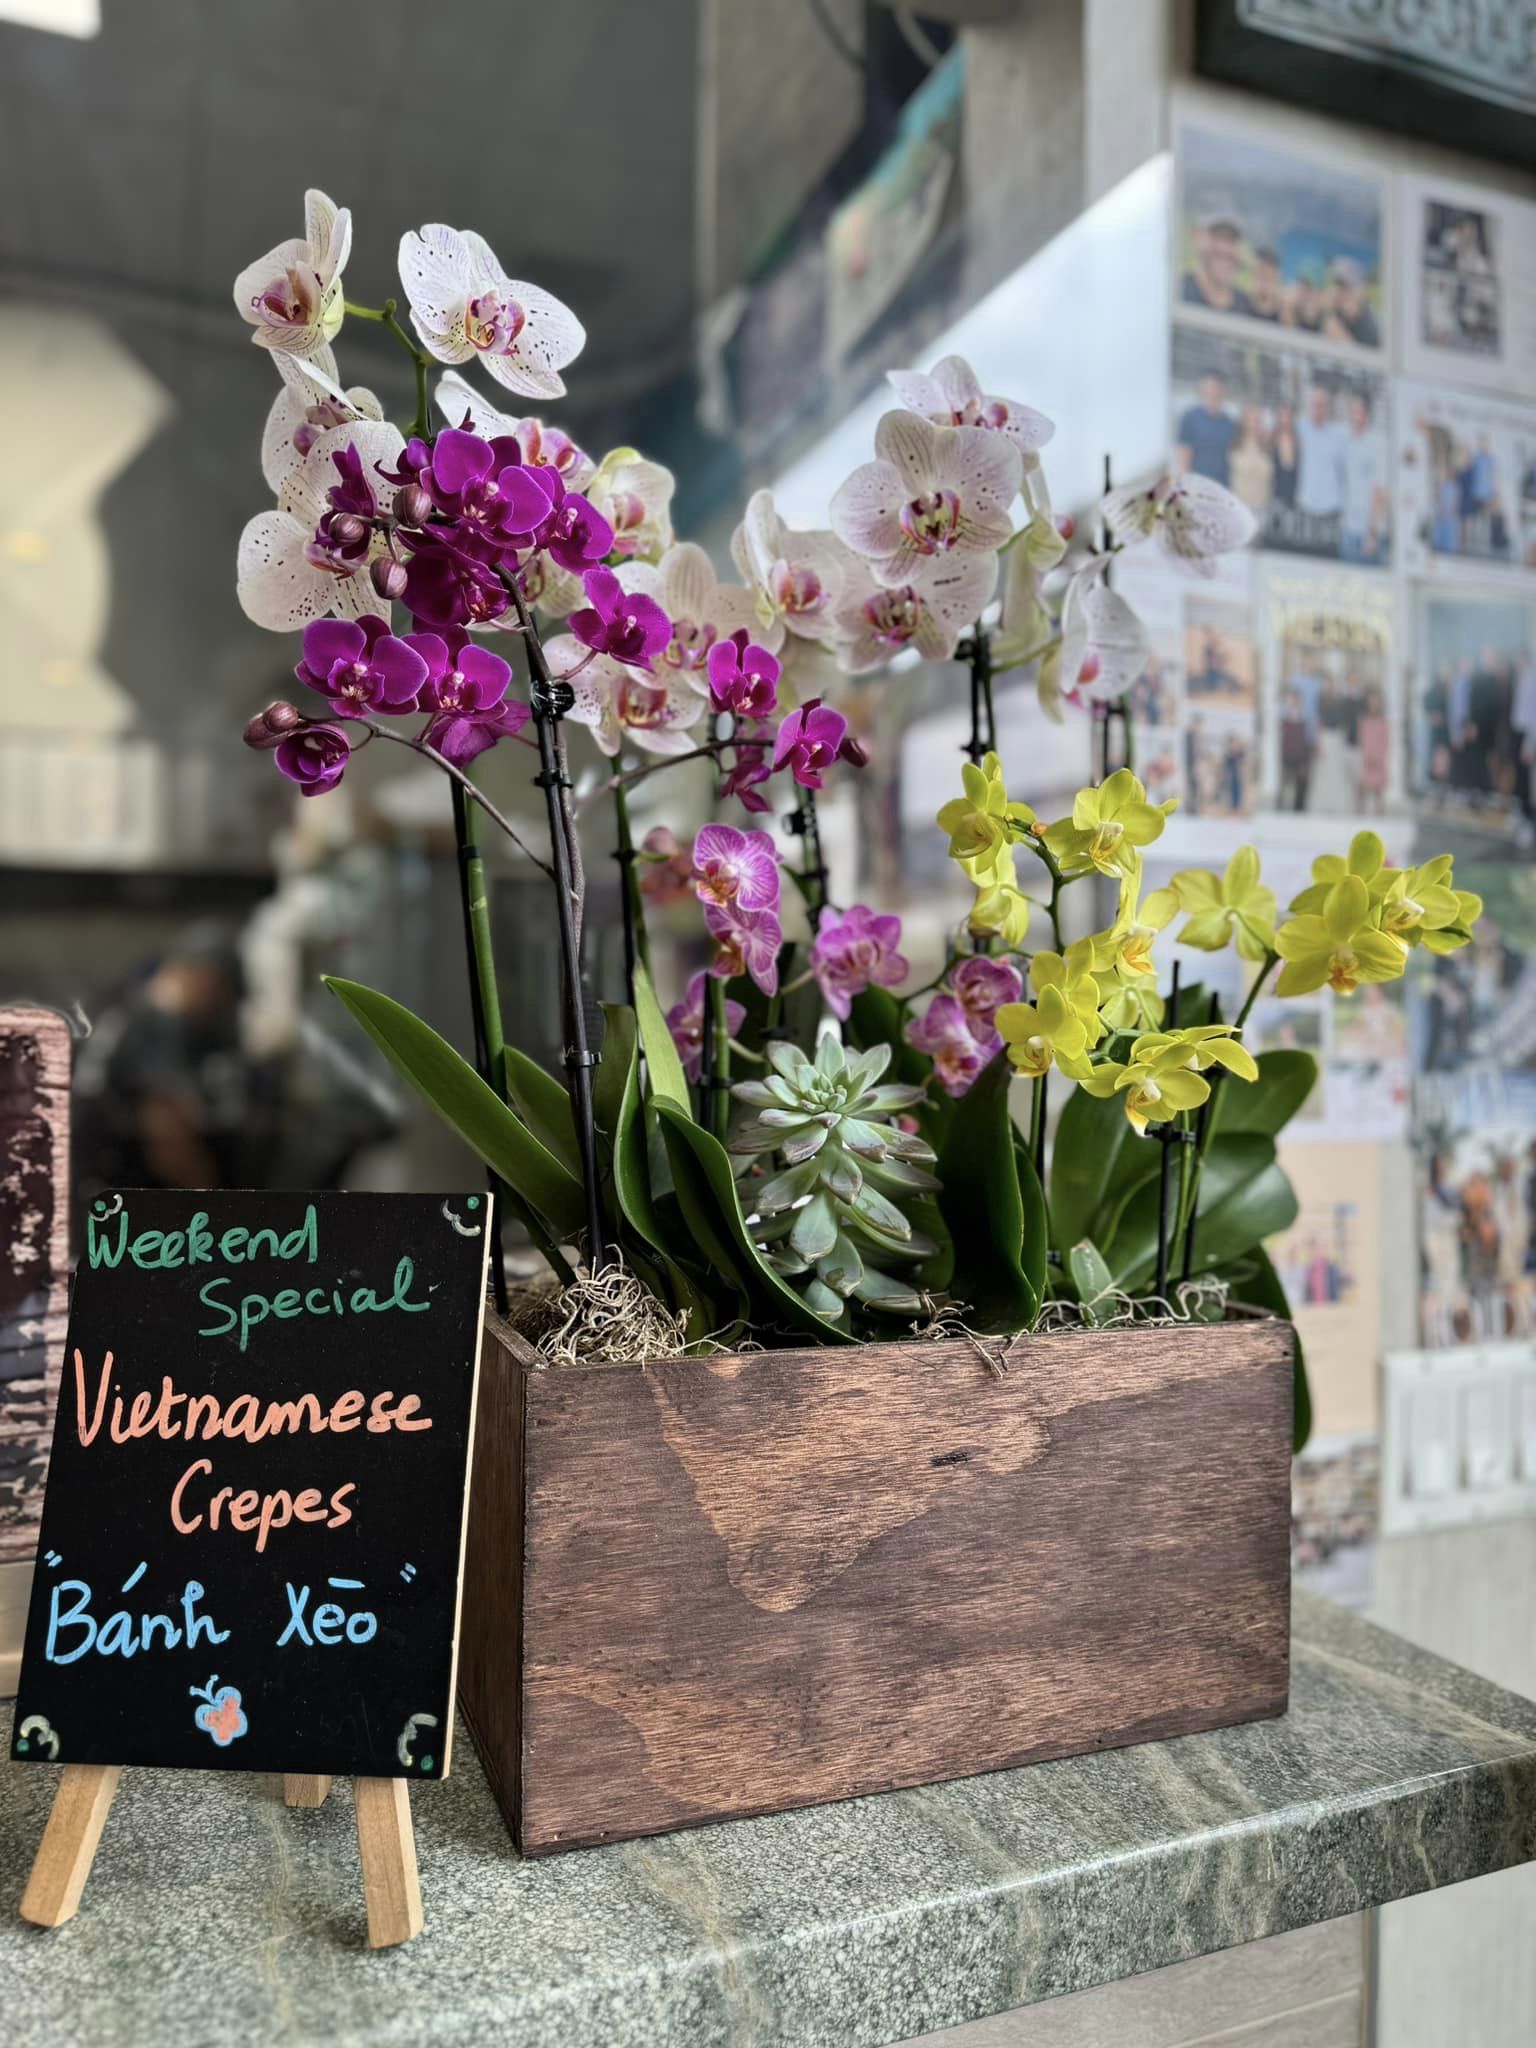 Weekend
Special
Vietnamese
Crepes
"Bánh Xēo"